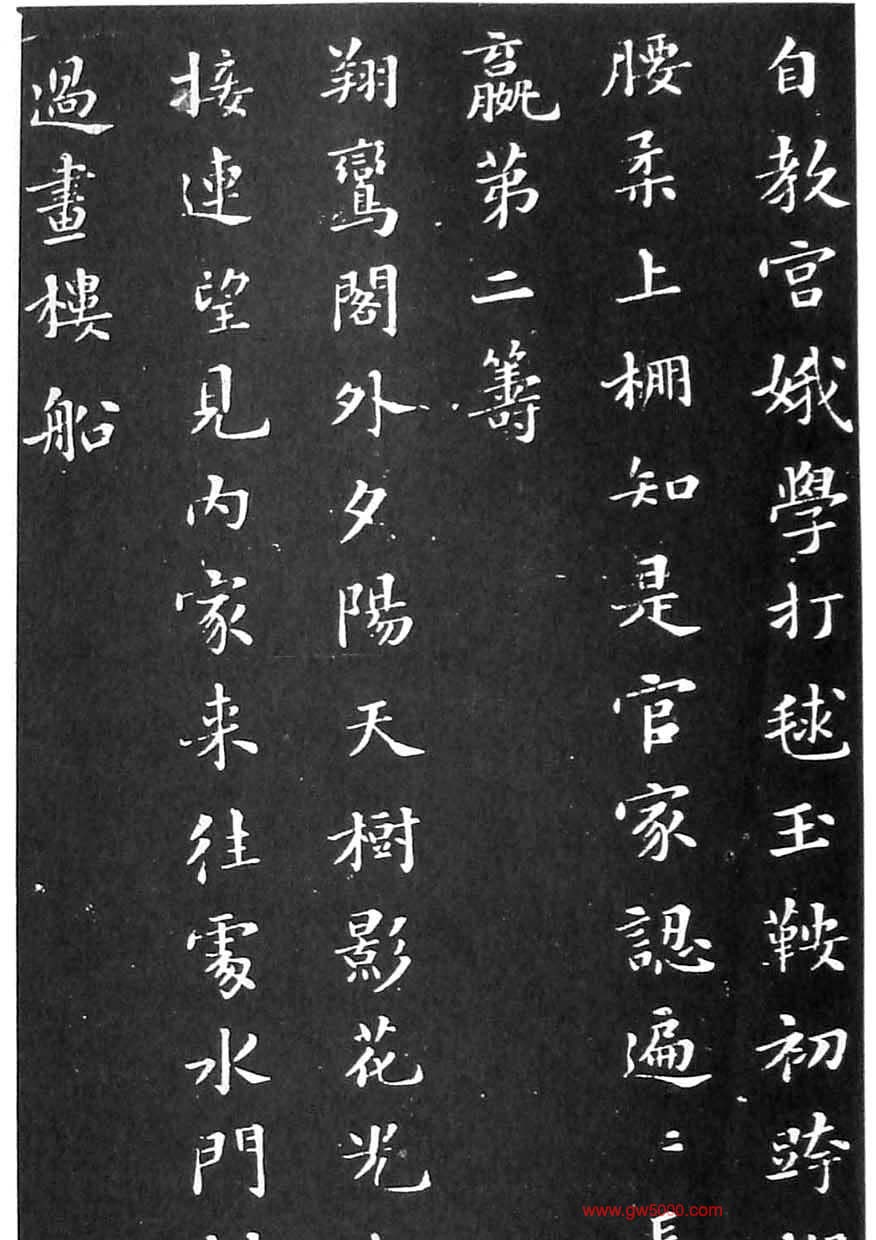 自教宮娥學打毬玉鞍初跨
腰柔上棚知是官家認遍〻長
贏第二籌
翔鸞閣外夕陽天樹影花光
接連望見內家来往處水門
過畫樓船
www.gw5000.com